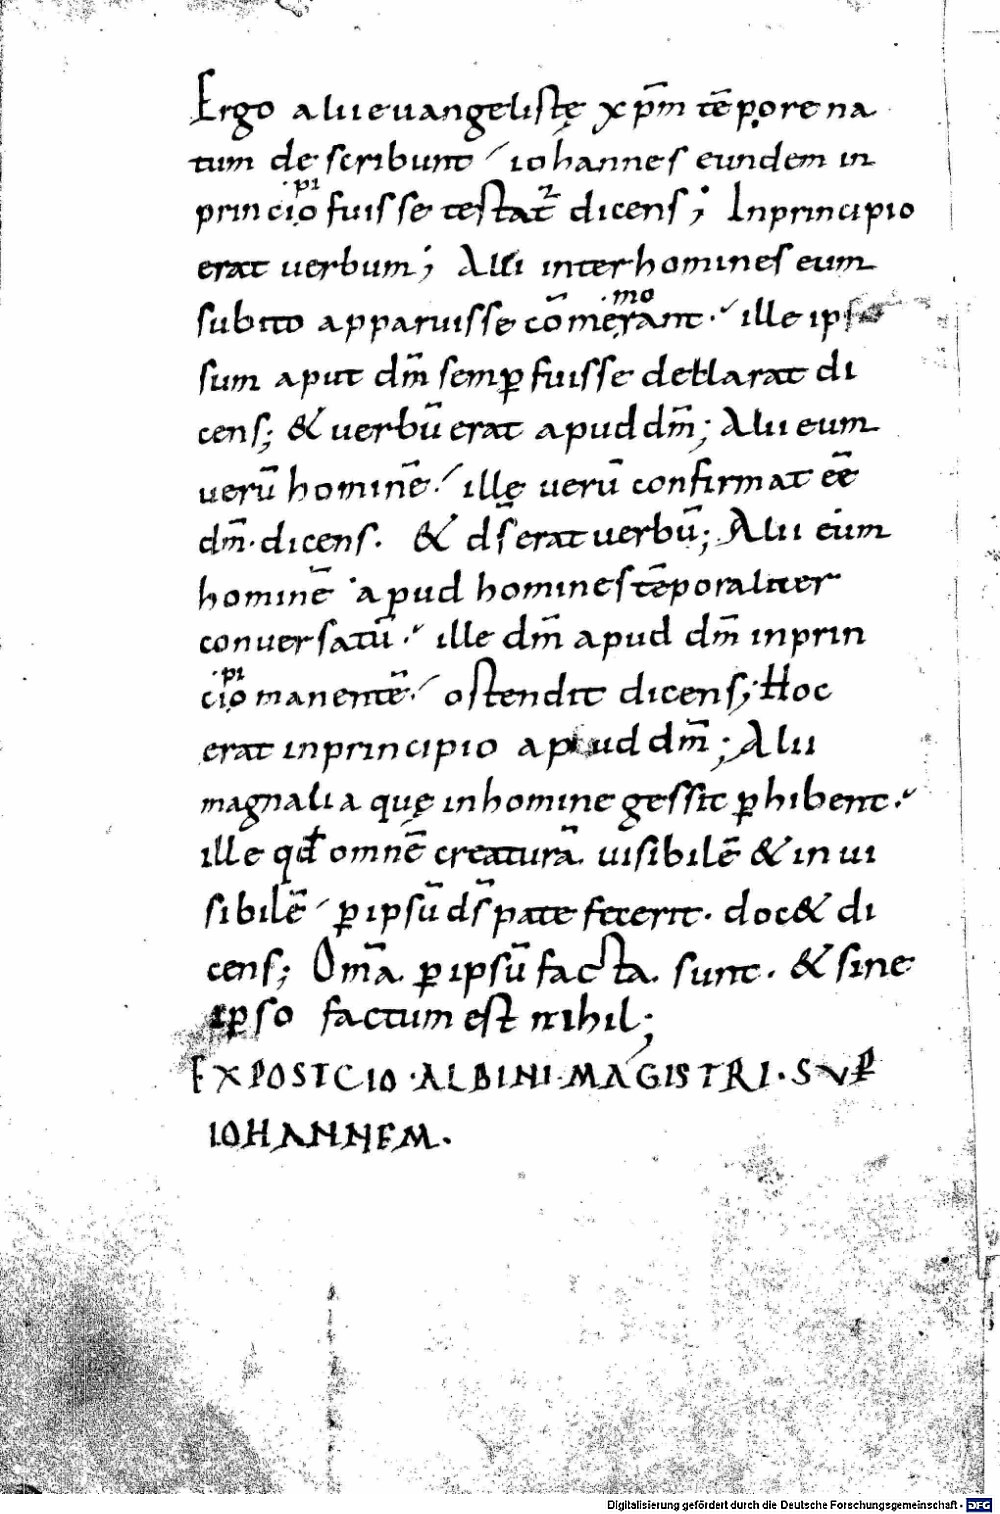 Ergo alii euangelistę xp̄m tēpore na
tum describunt iohannes eundem in
princio pi fuisse testat͛ dicens; Inprincipio
erat uerbum; Alii inter homines eum
subito apparuisse cōmerant mo ille ips
sum aput dm̄ semꝑ fuisse declarat di
cens; & uerbū erat apud dm̄; Alii eum
uerū hominē. ille uerū confirmat eē
dm̄. dicens. & ds̄ erat uerbū; Alii eum
hominē apud homines tēporaliter
conuersatū. ille dm̄ apud dm̄ inprin
cio pi manentē. ostendit dicens; Hoc
erat inprincipio apud dm̄; Alii
magnalia quę inhomine gessit ꝑhibent.
ille qđ omnē creaturā uisibilē & inui
sibilē ꝑ ipsū ds̄ pate fecerit. doc& di
cens; Om̄a ꝑ ipsū facta sunt. & sine
ipso factum est nihil;
EXPOSTCIO·ALBINI·MAGISTRI·SVꝐ
IOHANNEM.
Digitalisierung gefördert durch die Deutsche Forschungsgemeinschaft - DFG